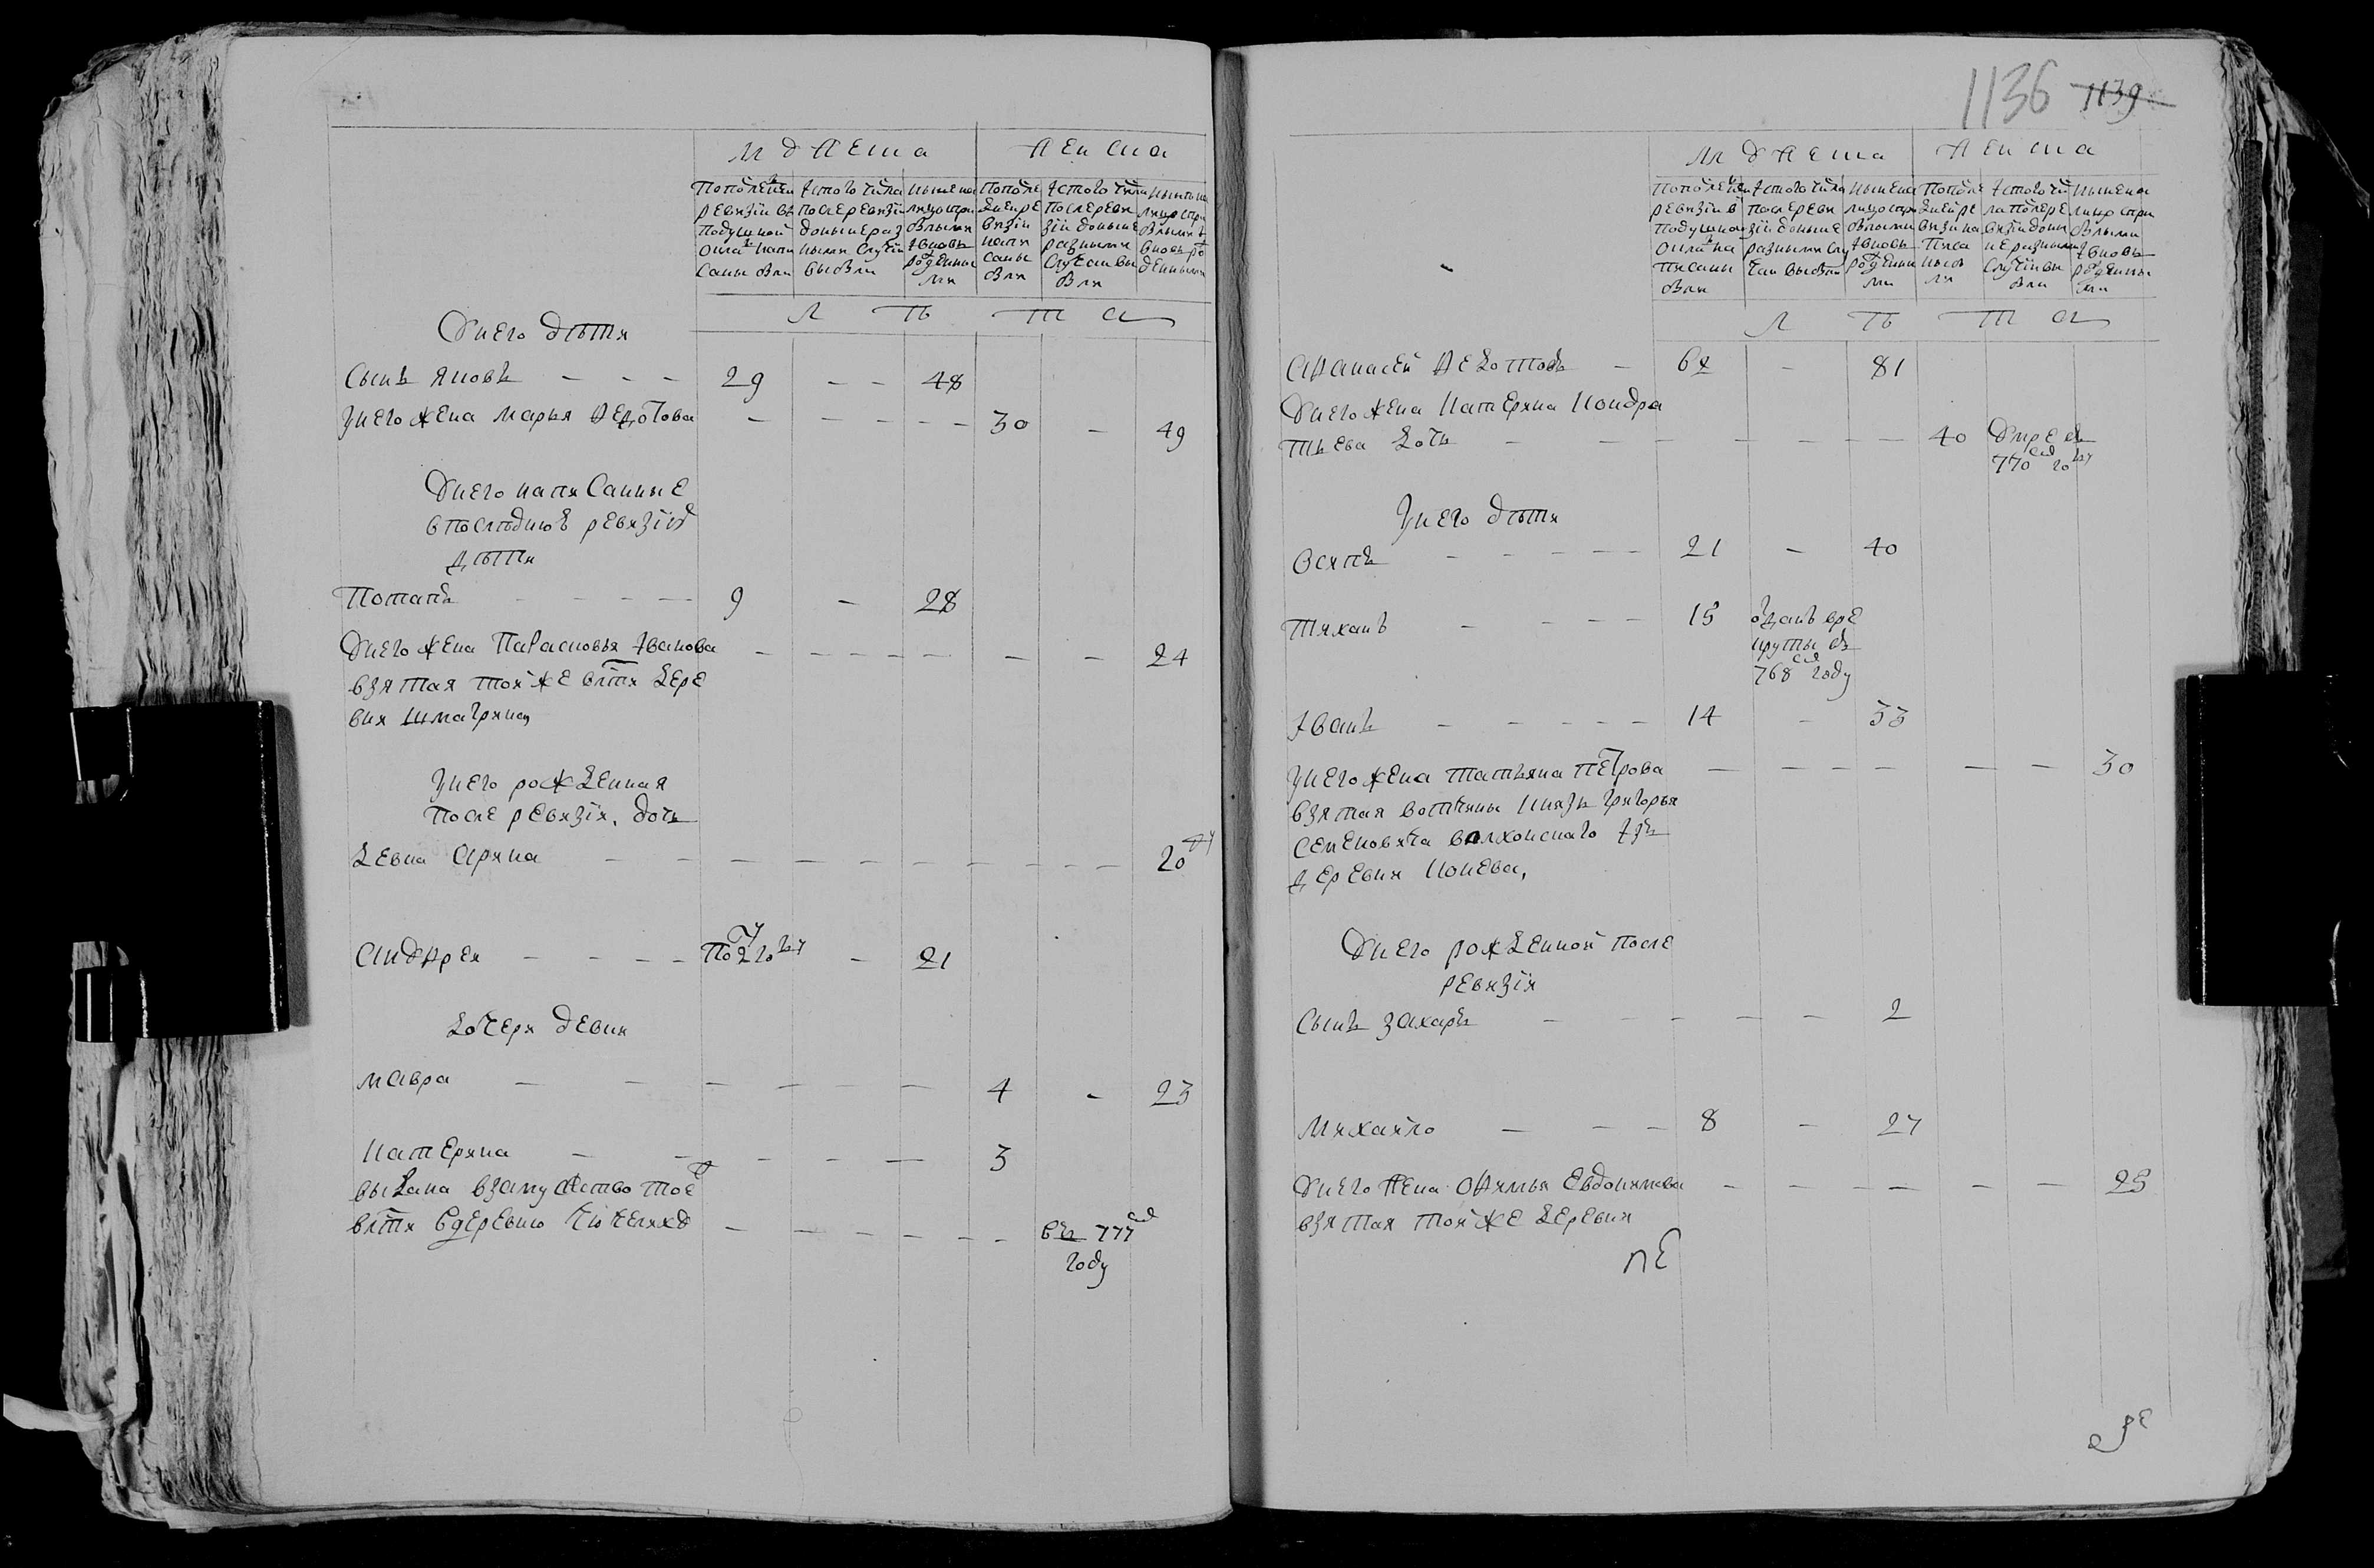 мужеска
женска
По последней ревизии в подушной оклад написаны были
Ис того числа после ревизии доныне разными случаи выбыли
Ныне налицо с прибылыми и вновь рожденными
По последней ревизии написаны были
Ис того числа после ревизии доныне разными случаи выбыли
Ныне налицо с прибылыми и вновь рожденными
Л Ѣ Т А
У него дѣти
сынъ яковъ - - - 29 - - 48
У него жена марья Федотова - - - - - 30 - 49
У него написанные
в последнюю ревизию
дѣти
Потапъ - - - - 9 - 28
У него жена Парасковья Иванова - - - - - - - 24
взятая той же вотчи дере
вни
У него рожденная
после ревизии, дочь
девка Арина - - - - - - - - - - 20 ду
Андрей - - - - По 2 году - 21
дочери девки
мавра - - - - - 4 - 23
катерина - - - - - 3
выдана в замужство тое
вотчи в деревню - - - - - - въ 777м
году
1136 1139
мужеска
женска
По последней ревизии в подушной оклад написаны были
Ис того числа после ревизии доныне разными случаи выбыли
Ныне налицо с прибылыми и вновь рожденными
По последней ревизии написаны были
Ис того числа после ревизии доныне разными случаи выбыли
Ныне налицо с прибылыми и вновь рожденными
Л Ѣ Т А
Афанасей Федотовъ - 62 - 81
У него жена катерина кондра
тьева дочь - - - - - - - 40 Умре въ
770м году
У него дѣти
Осипъ - - - - - 21 - 40
тиханъ - - - - 15 отданъ в ре
круты въ
768м году
Иванъ - - - - - 14 - 33
У него жена татьяна петрова - - - - - - 30
взятая вотчины князь григорья
семеновича волхонскаго изъ
деревни конева,
У него рожденной после
ревизии
сынъ захаръ - - - - - 2
Михайло - - - 8 - 27
У него жена Офимья Евдокимова - - - - - - 25
взятая той же деревни